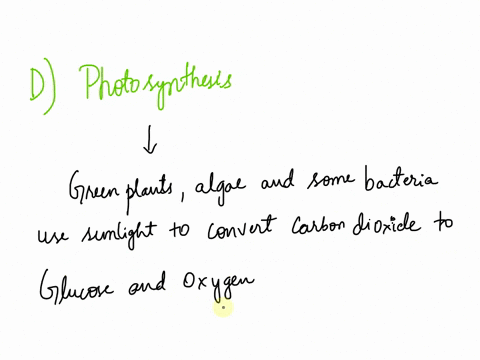 D) Photosynthesis
Green plants, algae and some bacteria
use sunlight to convert Carbon dioxide to
Glucose and Oxygen